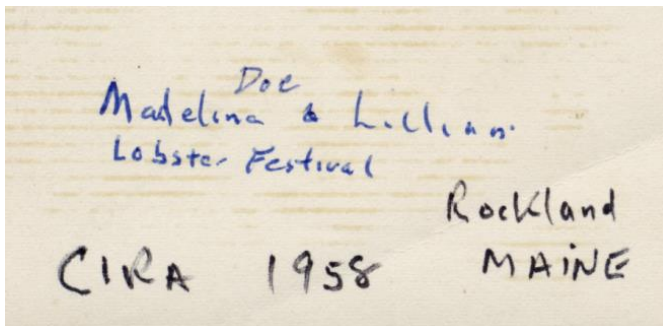 Doc
Madelina & Lillian
Lobster Festival
Rockland
MAINE
CIRA 1958